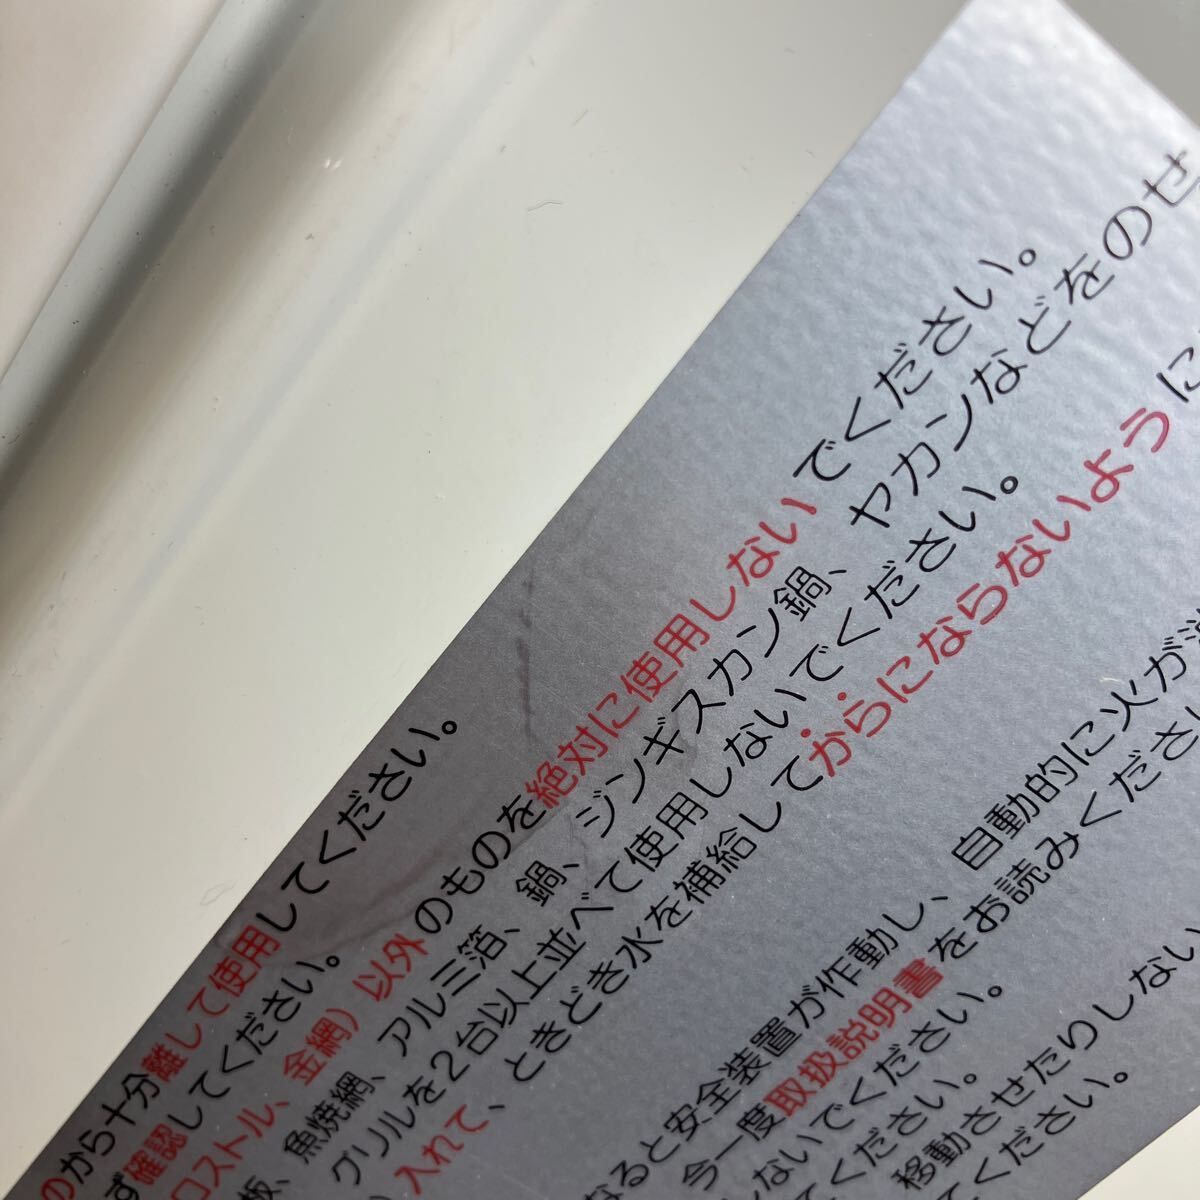 のから十分離して使用してください。
ず確認してください。
ロストル、金網）以外のものを絶対に使用しないでください。
板、魚焼網、アルミ箔、鍋、ジンギスカン鍋、ヤカンなどをのせ
グリルを2台以上並べて使用しないでください。
入れて、ときどき水を補給してからにならないように
なると安全装置が作動し、自動的に火が消
今一度取扱説明書をお読みください
しないでください。
てください。
移動させたりしない
てください。